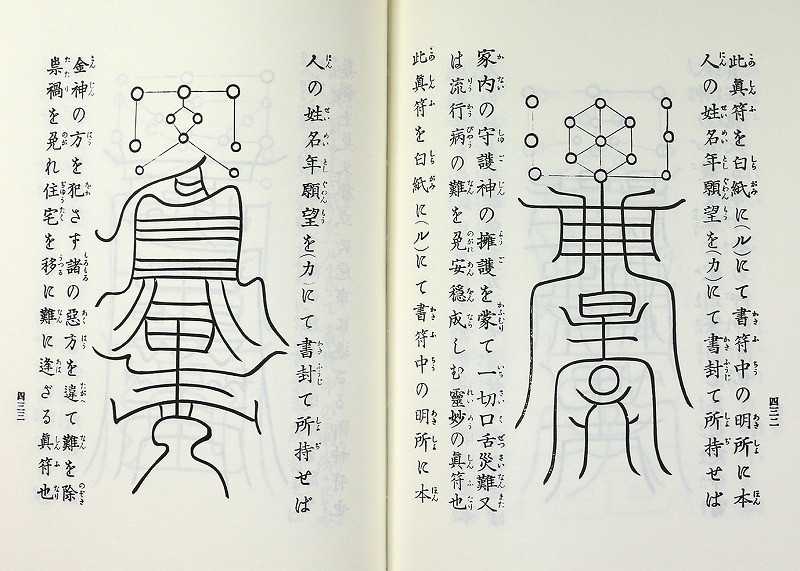 此真符を白紙に(ル)にて書符中の明所に本
人の姓名年願望を(カ)にて書封て所持せば
家内の守護神の擁護を蒙て一切口舌災難又
は流行病の難を免安穏成しむ靈妙の真符也
此真符を白紙に(ル)にて書符中の明所に本
四三一
人の姓名年願望を(カ)にて書封て所持せば
金神の方を犯さす諸の惡方を違て難を除
祟禍を免れ住宅を移に難に逢ざる真符也
四三二